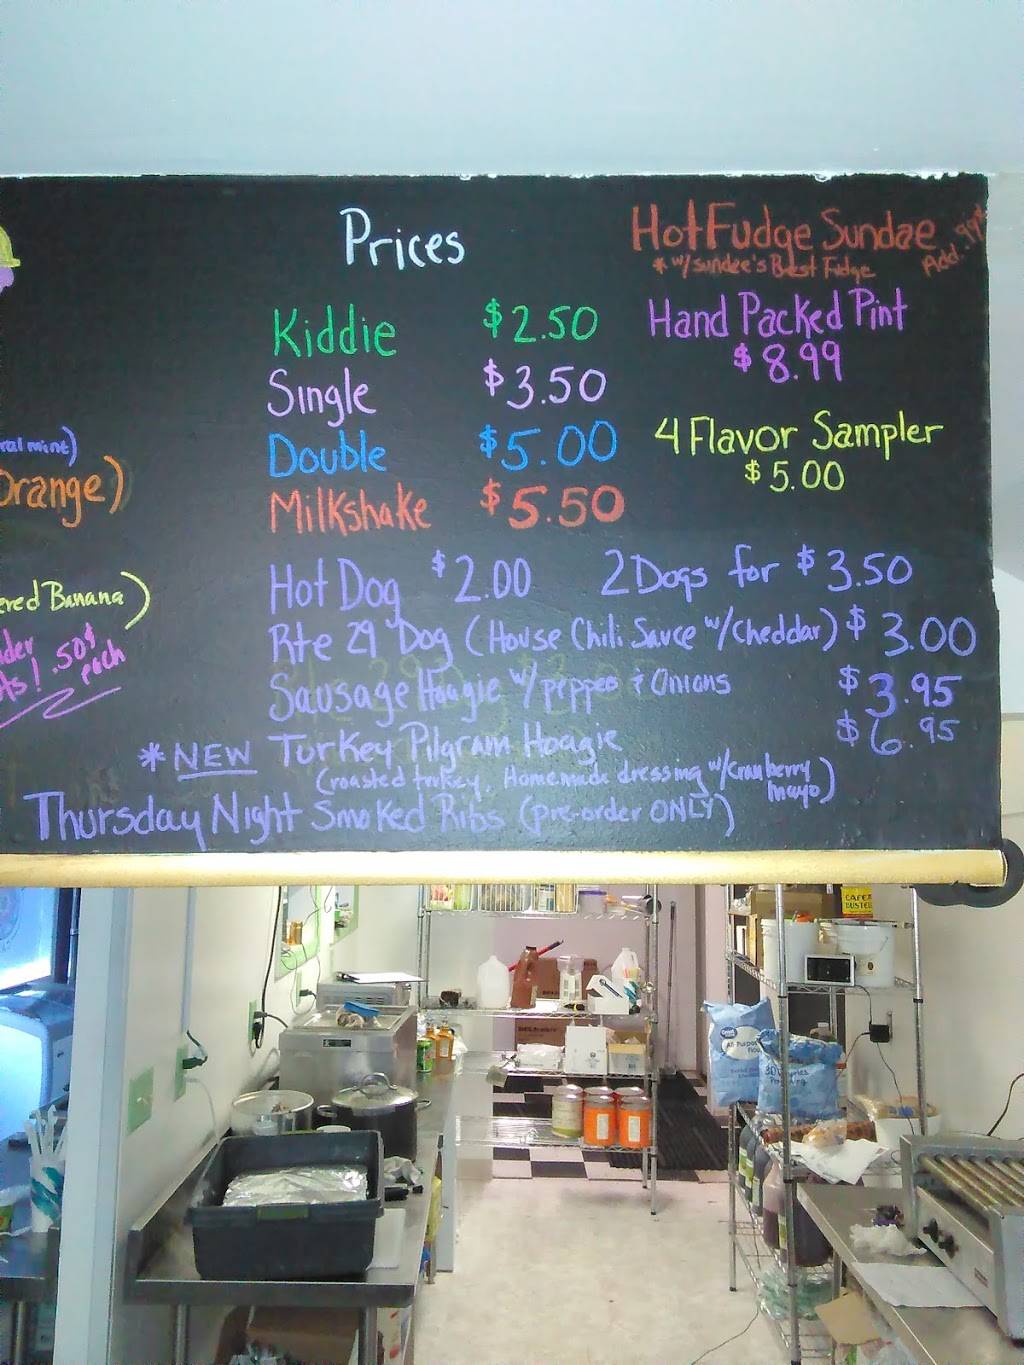 Prices
Kiddie $2.50
Single $3.50
Double $5.00
Milkshake $5.50
Hot Fudge Sundae Add .99¢
* w/ sundee's Best Fudge
Hand Packed Pint
$8.99
4 Flavor Sampler
$5.00
mint)
Orange)
Banana)
.50¢
each
Hot Dog $2.00 2 Dogs for $3.50
Rte 29 Dog (House Chili Sauce w/Cheddar) $3.00
Sausage Hoagie w/ peppes & Onions $3.95
* NEW Turkey Pilgram Hoagie $6.95
(roasted turkey, Homemade dressing w/cranberry
mayo)
Thursday Night Smoked Ribs (pre-order ONLY)
CAFE
BUSTELO